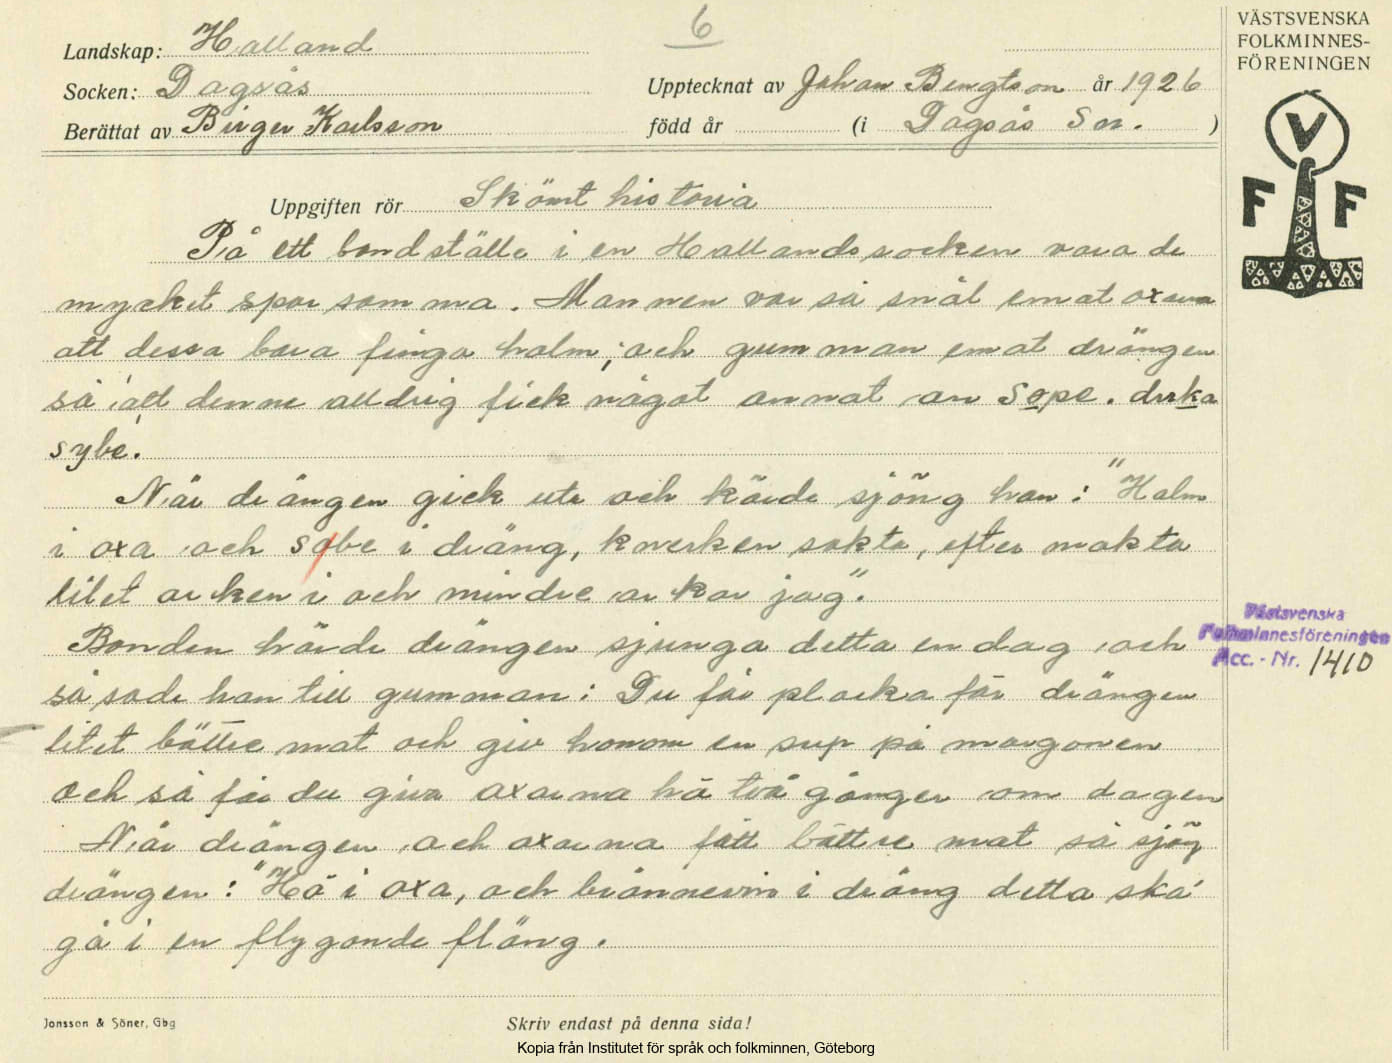 6
Landskap: Halland
Socken: Dagsås
Upptecknat av Johan Bengtson år 1926
Berättat av Birger Karlsson
född år (i Dagsås Sn. )
VÄSTSVENSKA
FOLKMINNES-
FÖRENINGEN
V
F F
Uppgiften rör Skömt historia
På ett bondställe i en Hallandssocken vara de
mycket sparsamma. Mannen var så snål emot oxarna
att dessa bara finga halm; och gumman emot drängen
så att denne alldrig fick något annat än Sope. drska
sybe.
När drängen gick ute och körde sjöng han: "Halm
i oxa och sobe i dräng, knerken sakta, efter makta
litet orken i och mindre orkar jag".
Bonden hörde drängen sjunga detta en dag och
så sade han till gumman: Du får plocka för drängen
litet bättre mat och giv honom en sup på morgonen
och så får du giva oxarna hö två gånger om dagen
När drängen och oxarna fått bättre mat så sjöng
drängen: "Hö i oxa, och brännevin i dräng detta ska
gå i en flygande fläng.
Västsvenska
Folkminnesföreningen
Acc. - Nr. 1410
Jonsson & Söner, Gbg
Skriv endast på denna sida!
Kopia från Institutet för språk och folkminnen, Göteborg